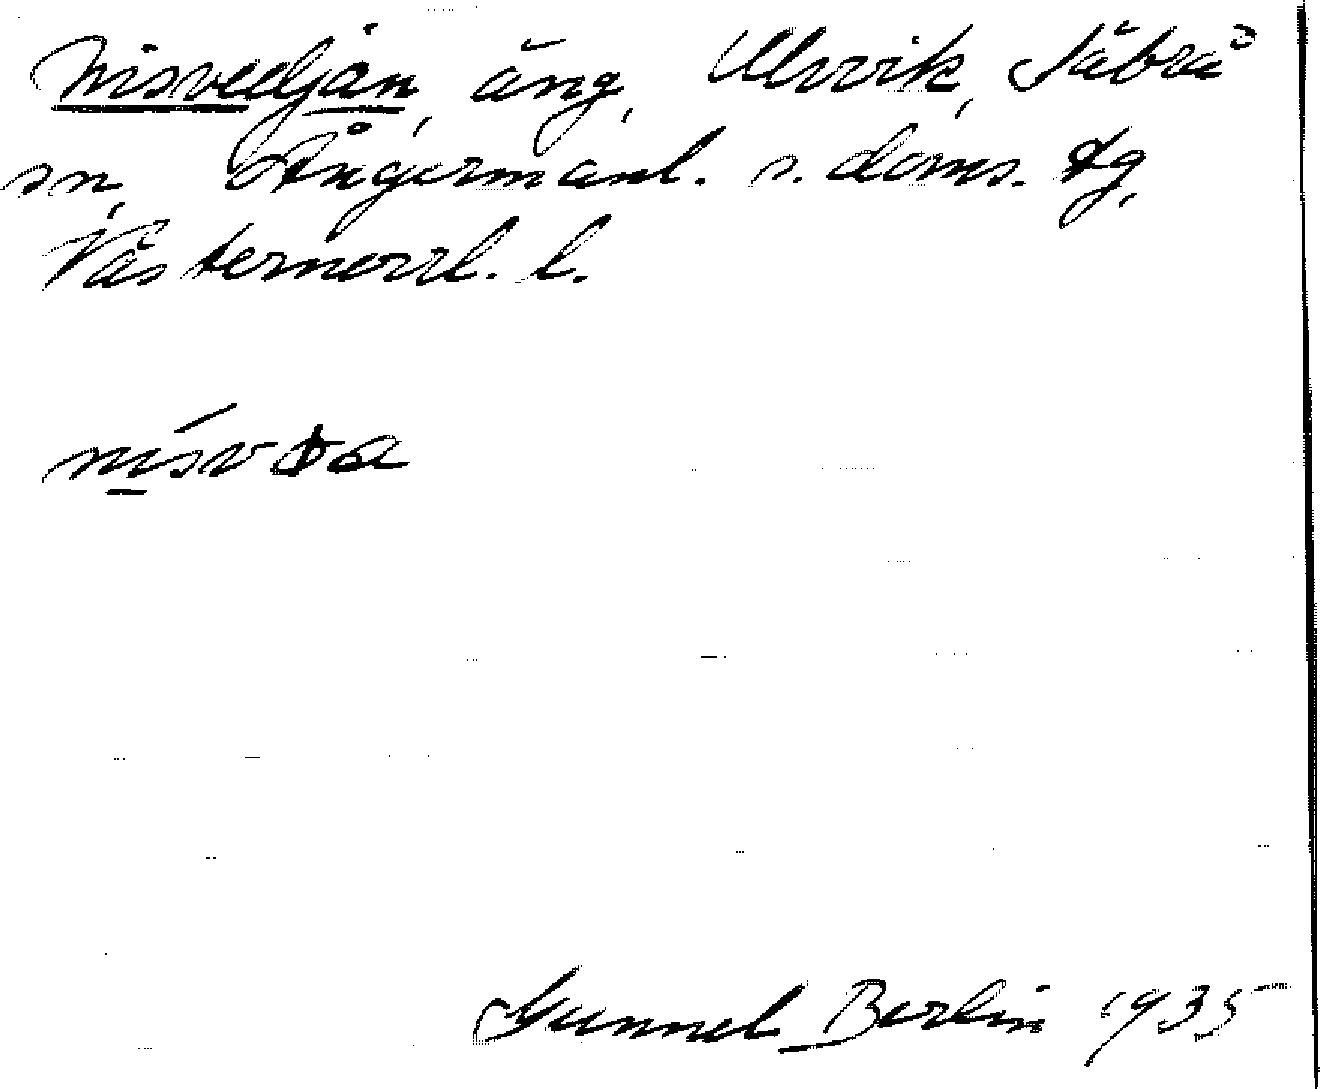 Nisvedjan, äng, Ulvvik, Säbrå
sn, Ångermanl. s. doms. tg,
Västernorrl. l.
Gunnel Berlin 1935